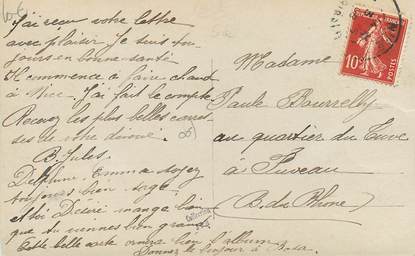 J'ai recu votre lettre
avec plaisir Je suis tou
jours en bonne santé
Il commence a faire chaud
à Nice. J'ai fait le compte
Recevez les plus belles cares
ses de votre dévoué.
B. Jules.
Delphine, Emma soyez
toujours bien sage.
Désiré mange bien
que tu viennes bien grand
Cette belle carte ornera bien l'album
Donnez le bonjour à
Madame
Paule Bourrelly
au quartier du
à Fuveau
(B. du Rhône)
10c
POSTES